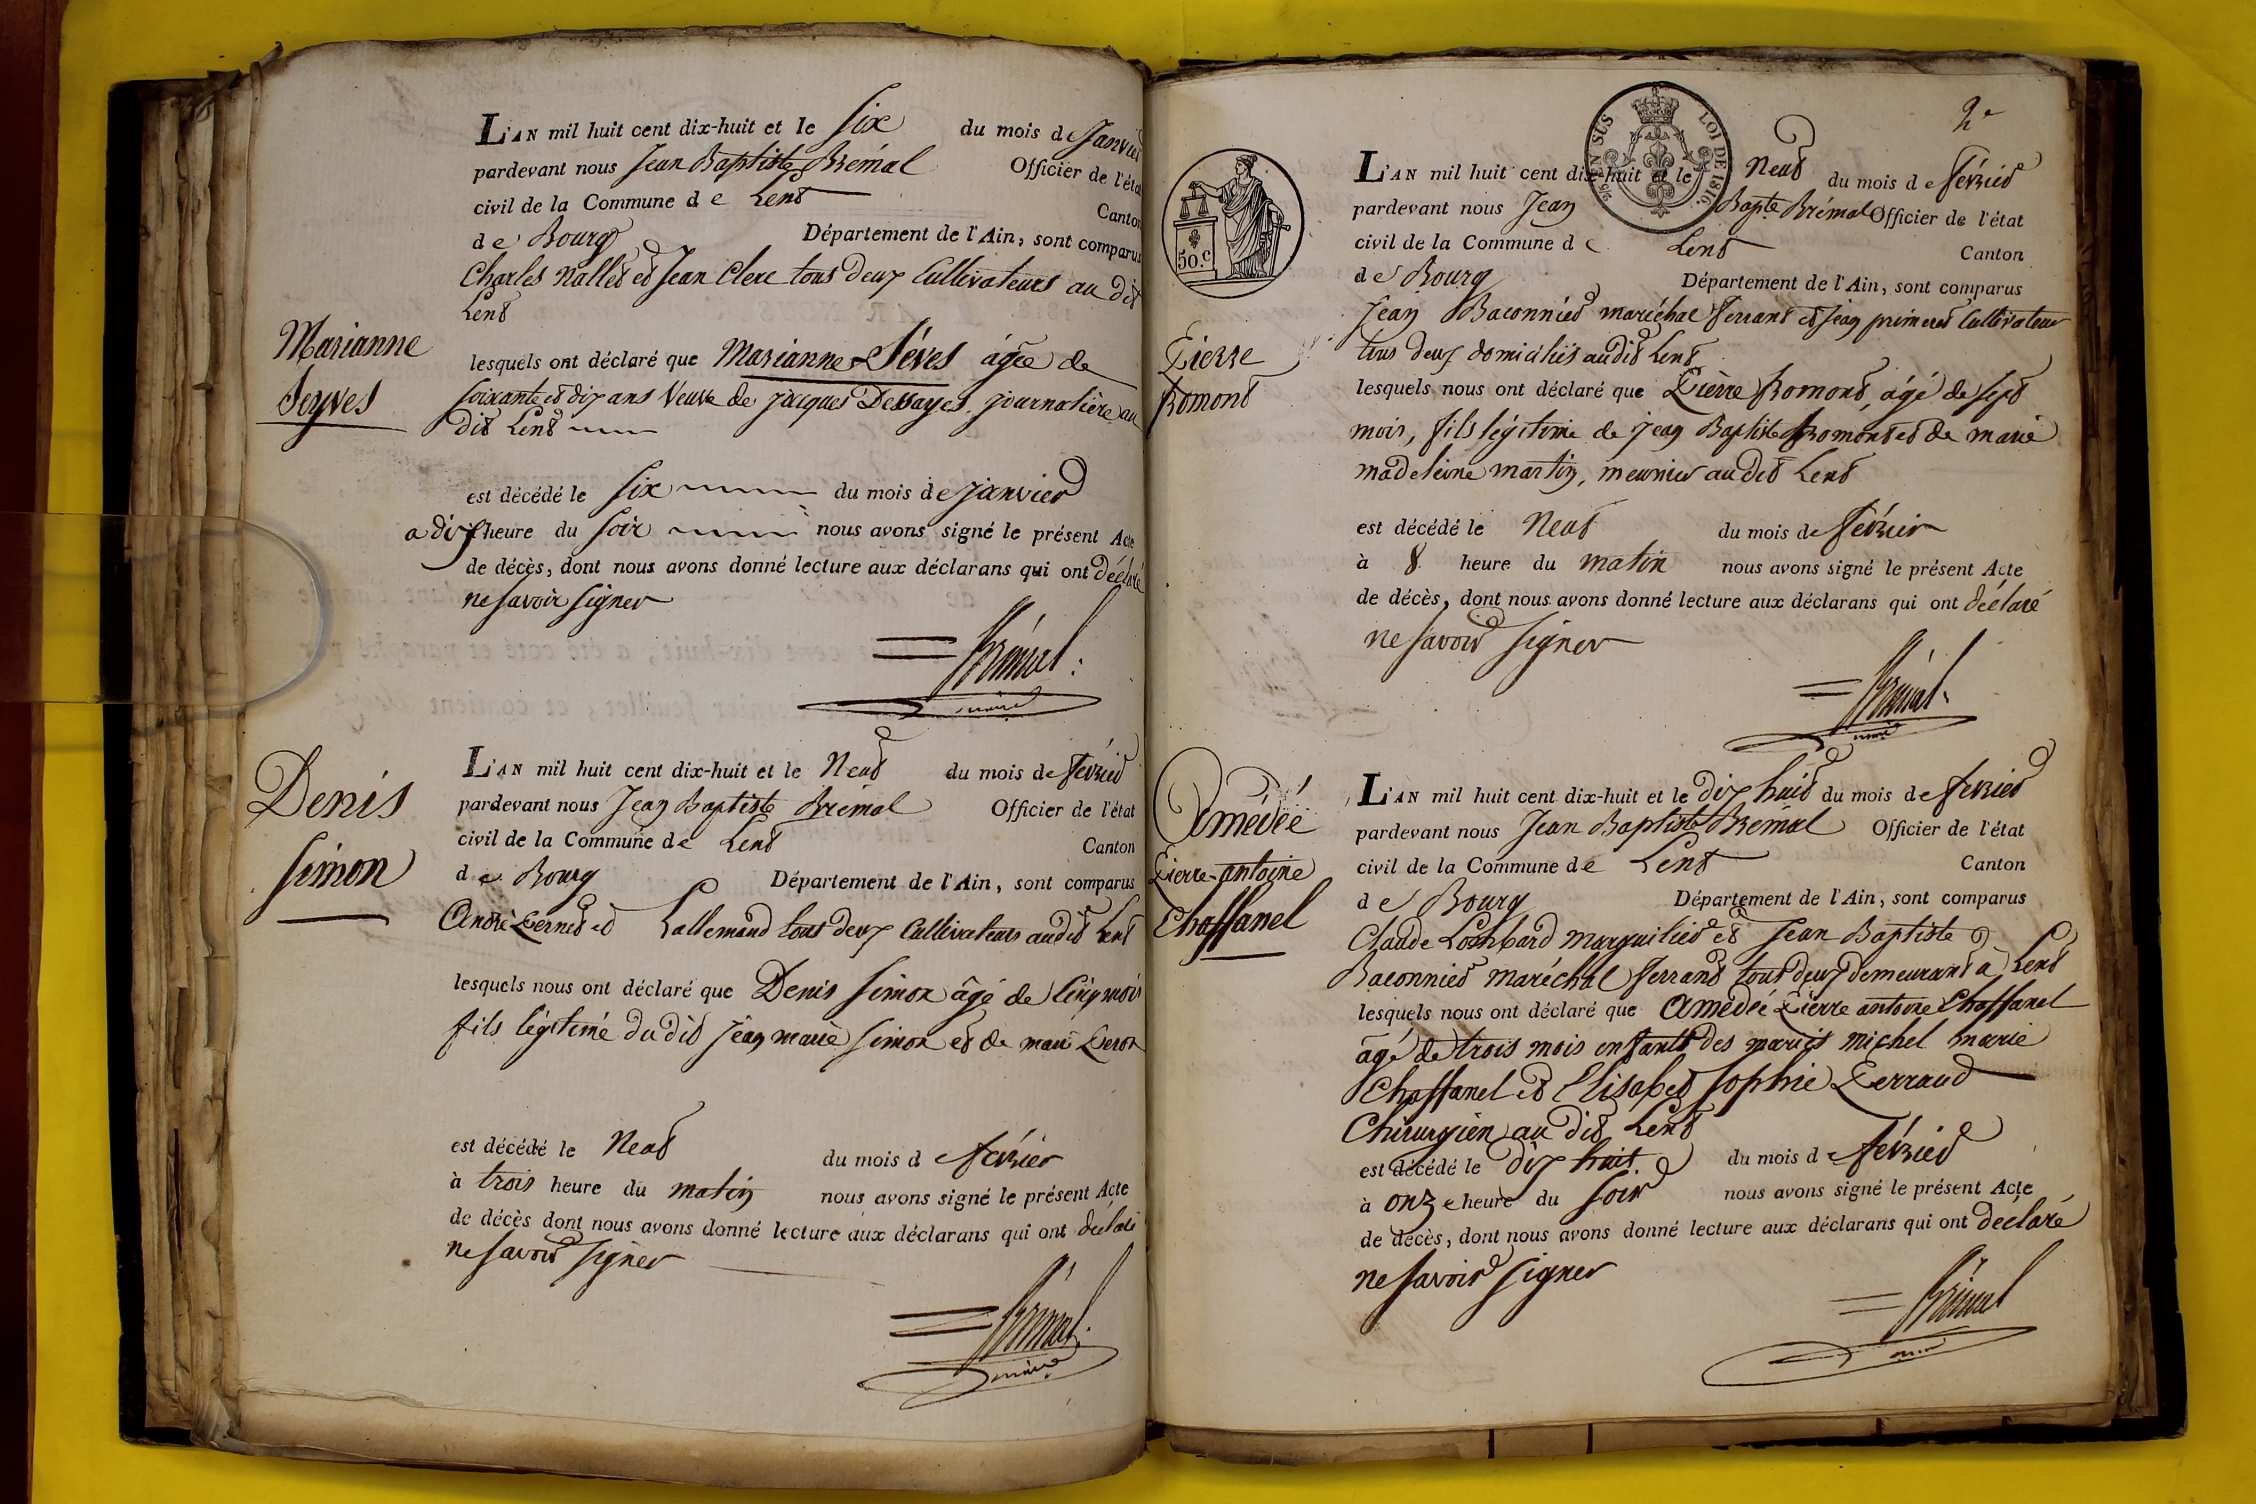 L'AN mil huit cent dix-huit et le Six du mois de Janvier
pardevant nous Jean Baptiste Brémal Officier de l'état
civil de la Commune de Lent Canton
de Bourg Département de l'Ain, sont comparus
Charles nallet et Jean Clerc tous deux Cultivateurs au dit
Lent
Marianne
Seyves
lesquels ont déclaré que Marianne Séves âgée de
soixante et dix ans Veuve de jacques Dessayes, journalière au
dit Lent
est décédé le six du mois de janvier
a dix heure du soir nous avons signé le présent Acte
de décès, dont nous avons donné lecture aux déclarans qui ont déclaré
ne savoir signer
Brémal
maire
Denis
simon
L'AN mil huit cent dix-huit et le Neuf du mois de février
pardevant nous Jean Baptiste Brémal Officier de l'état
civil de la Commune de Lent Canton
de Bourg Département de l'Ain, sont comparus
André et Lallemand tous deux Cultivateurs audit Lent
lesquels nous ont déclaré que Denis simon âgé de Cinq mois
fils légitimé du dit Jean marie simon et de marie
est décédé le Neuf du mois de février
à trois heure du matin nous avons signé le présent Acte
de décès dont nous avons donné lecture aux déclarans qui ont déclaré
ne savoir signer
Brémal
maire
2e
TIMB. EN SUS LOI DE 1816.
50.c
L'AN mil huit cent dix-huit et le Neuf du mois de février
pardevant nous Jean Bapte Brémal Officier de l'état
civil de la Commune de Lent Canton
de Bourg Département de l'Ain, sont comparus
Jean Baconnier maréchal ferrant et Jean Cultivateur
tous deux domiciliés audit Lent
Pierre
Romont
lesquels nous ont déclaré que Pierre Romont, âgé de sept
mois, fils légitime de Jean Baptiste Romont et de marie
madeleine martin, meunier audit Lent
est décédé le Neuf du mois de février
à 8 heure du matin nous avons signé le présent Acte
de décès, dont nous avons donné lecture aux déclarans qui ont déclaré
ne savoir signer
Brémal
maire
Amédéé
Pierre-antoine
Chaffanel
L'AN mil huit cent dix-huit et le dix huit du mois de février
pardevant nous Jean Baptiste Brémal Officier de l'état
civil de la Commune de Lent Canton
de Bourg Département de l'Ain, sont comparus
Claude Lombard marguilier et Jean Baptiste
Baconnier maréchal ferrant tous deux demeurant a Lent
lesquels nous ont déclaré que Amédéé Pierre antoine Chaffanel
âgé de trois mois enfant des mariés michel marie
Chaffanel et Elisabet sophie Perraud
Chirurgien au dit Lent
est décédé le dix huit du mois de février
à onze heure du soir nous avons signé le présent Acte
de décès, dont nous avons donné lecture aux déclarans qui ont déclaré
ne savoir signer
Brémal
maire